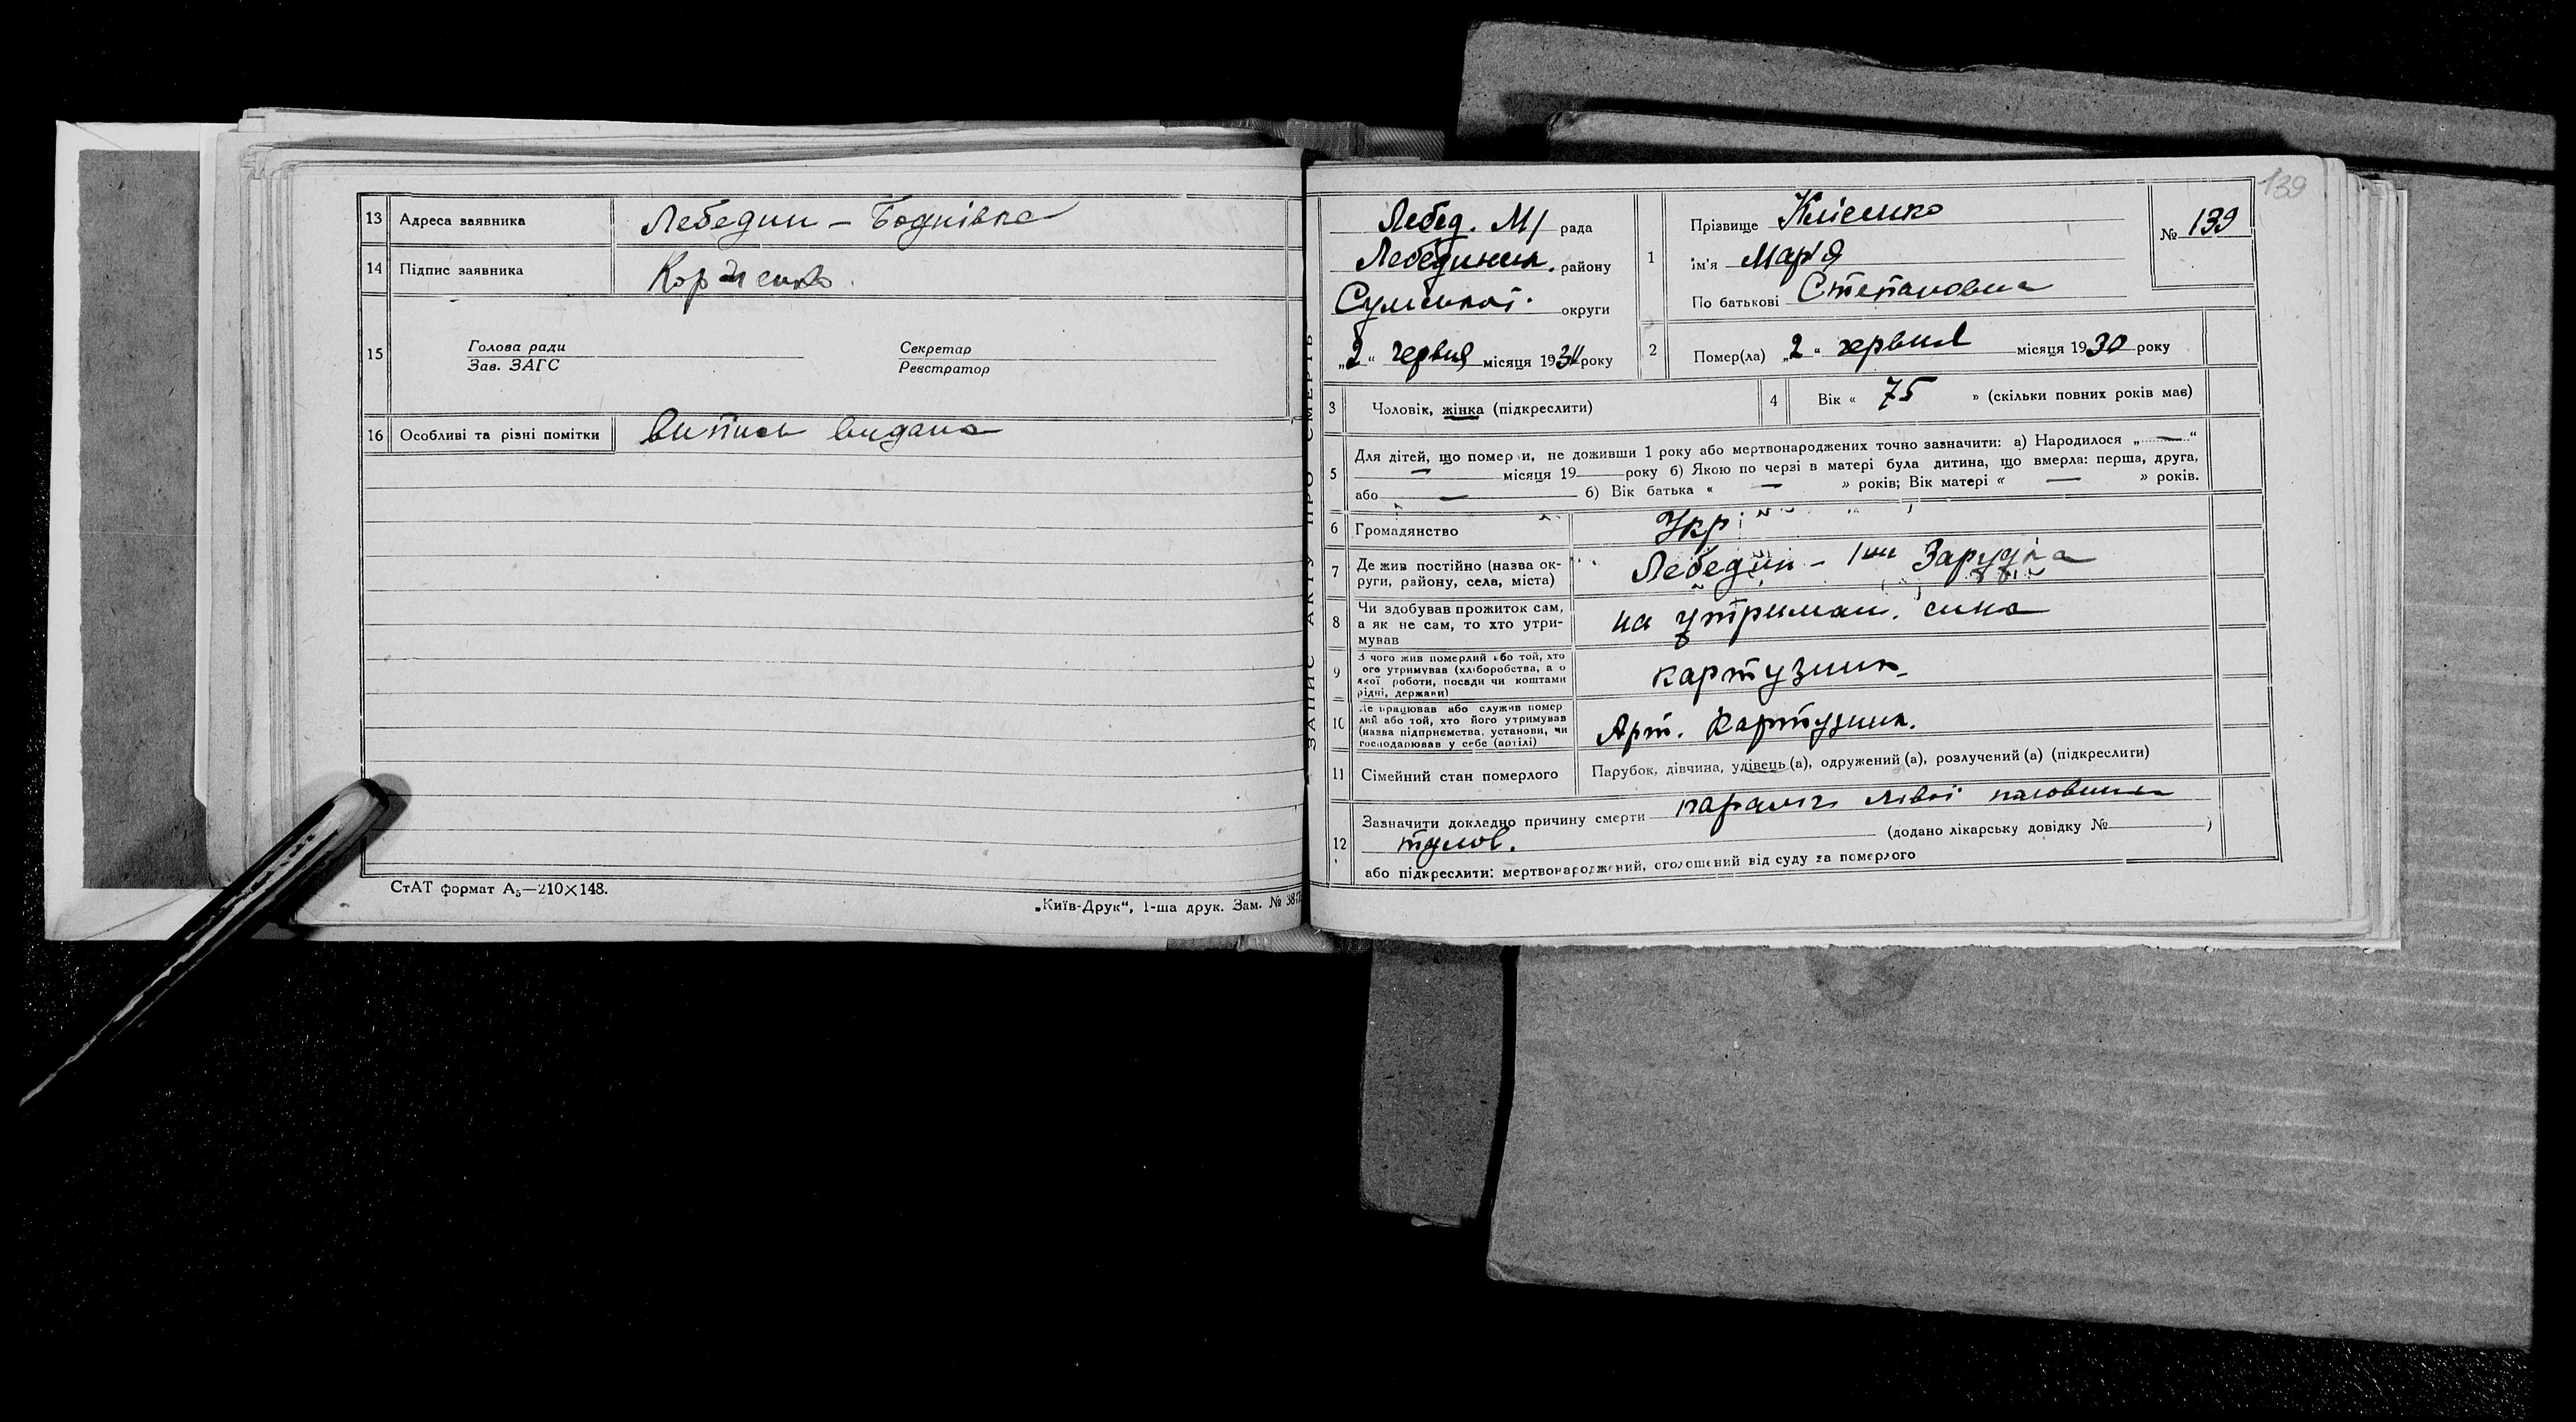 13 Адреса заявника Лебедин – Боднівка
14 Підпис заявника
15 Голова ради
Зав. ЗАГС
Секретар
Реєстратор
16 Особливі та різні помітки Випись видана
СтАТ формат А₅—210×148.
„Київ-Друк“, 1-ша друк. Зам. №
ЗАПИС АКТУ ПРО СМЕРТЬ
139
Лебед. М/ рада
Лебединськ. району
Сумської округи
„2“ червня місяця 193 року
1 Прізвище Клісенко
ім'я Марія
По батькові Степановна
№ 139
2 Помер(ла) „2“ червня місяця 1930 року
3 Чоловік, жінка (підкреслити)
4 Вік « 75 » (скільки повних років має)
5 Для дітей, що померли, не доживши 1 року або мертвонароджених точно зазначити: а) Народилося „—“
— місяця 19 року б) Якою по черзі в матері була дитина, що вмерла: перша, друга,
або — б) Вік батька « — » років; Вік матері « — » років.
6 Громадянство Укр
7 Де жив постійно (назва ок-
руги, району, села, міста) Лебедин – 1ш Зарудка
8 Чи здобував прожиток сам,
а як не сам, то хто утри-
мував на утриман. сина
9 З чого жив померлий або той, хто
ого утримував (хліборобства, а о
якої роботи, посади чи коштами
рідні, держави) картузник
10 Де працював або служив помер
лий або той, хто його утримував
(назва підприємства, установи, чи
господарював у себе (артілі) Арт. Картузник.
11 Сімейний стан померлого Парубок, дівчина, удівець (а), одружений (а), розлучений (а) (підкреслити)
12 Зазначити докладно причину смерти параліч лівої половини
тулов. (додано лікарську довідку № )
або підкреслити: мертвонароджений, оголошений від суду за померлого